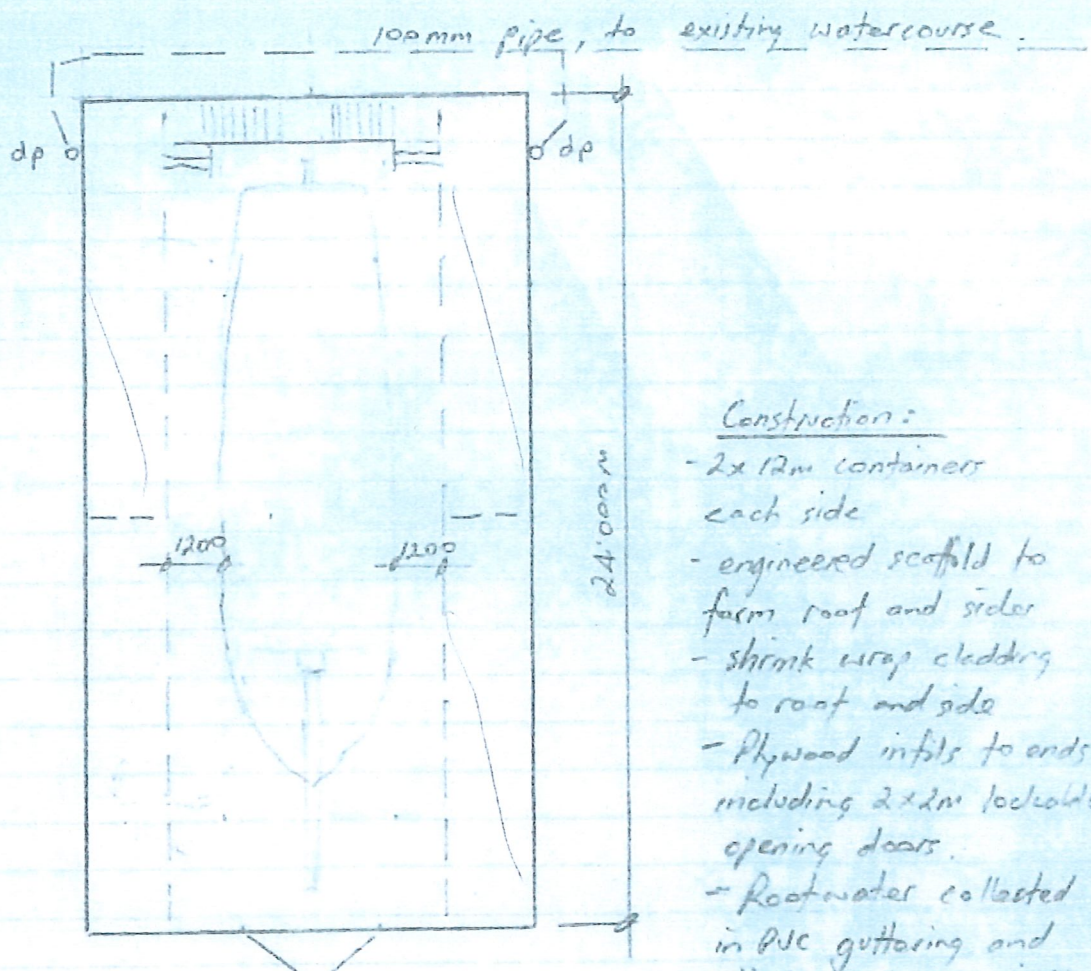 100mm pipe, to existing watercourse.
dp
dp
1200
1200
24'000m
Construction:
- 2x 12m containers
each side
- engineered scaffold to
form roof and sides
- shrink wrap cladding
to roof and side
- Plywood infils to ends
including 2x2m lockable
opening doors.
- Roofwater collected
in PVC guttering and